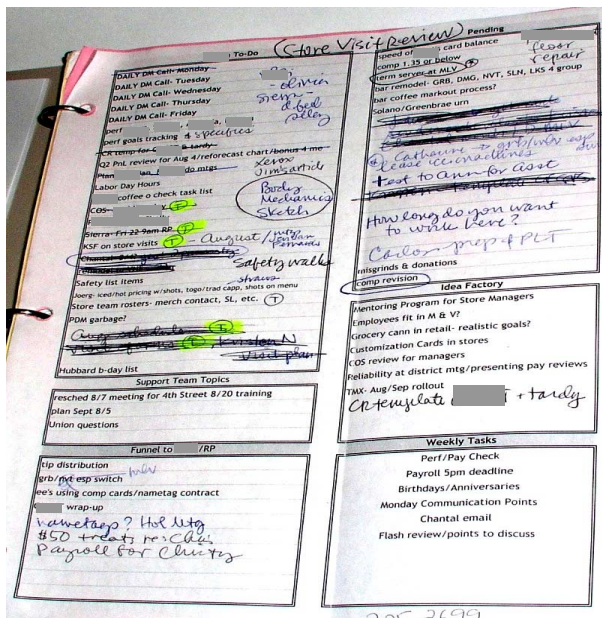 To-Do
(Store Visit Review)
DAILY DM Call- Monday
DAILY DM Call- Tuesday
DAILY DM Call- Wednesday
DAILY DM Call- Thursday
DAILY DM Call- Friday
perf
perf goals tracking & specifics
CR temp for & tardy
Q2 PnL review for Aug 4/reforecast chart/bonus 4 me
Labor Day Hours
coffee o check task list
COS-
Sierra- Fri 22 9am RP P
KSF on store visits T - August
Safety walks
Safety list items
straws
Joerg- iced/hot pricing w/shots, togo/trad capp, shots on menu
Store team rosters- merch contact, SL, etc. T
PDM garbage?
Kristen N
visit plan
Hubbard b-day list
Xerox
Jims article
Body
Mechanics
Sketch
Support Team Topics
resched 8/7 meeting for 4th Street 8/20 training
plan Sept 8/5
Union questions
Funnel to /RP
tip distribution
grb/nvt esp switch
mlv
ee's using comp cards/nametag contract
wrap-up
nametags? Hol Mtg
$50 treats re: Chai
Payroll for Christy
Pending
speed of card balance
floor
repair
comp 1.35 or below
term server at MLV
bar remodel- GRB, DMG, NVT, SLN, LKS 4 group
bar coffee markout process?
Solano/Greenbrae urn
Catharine → grb/mlv esp
lease ice machines
test to Ann for asst
How long do you want
to work here?
Carlo - prep 4 PLT
misgrinds & donations
comp revision
Idea Factory
Mentoring Program for Store Managers
Employees fit in M & V?
Grocery cann in retail- realistic goals?
Customization Cards in stores
COS review for managers
Reliability at district mtg/presenting pay reviews
TMX- Aug/Sep rollout
CR template + tardy
Weekly Tasks
Perf/Pay Check
Payroll 5pm deadline
Birthdays/Anniversaries
Monday Communication Points
Chantal email
Flash review/points to discuss